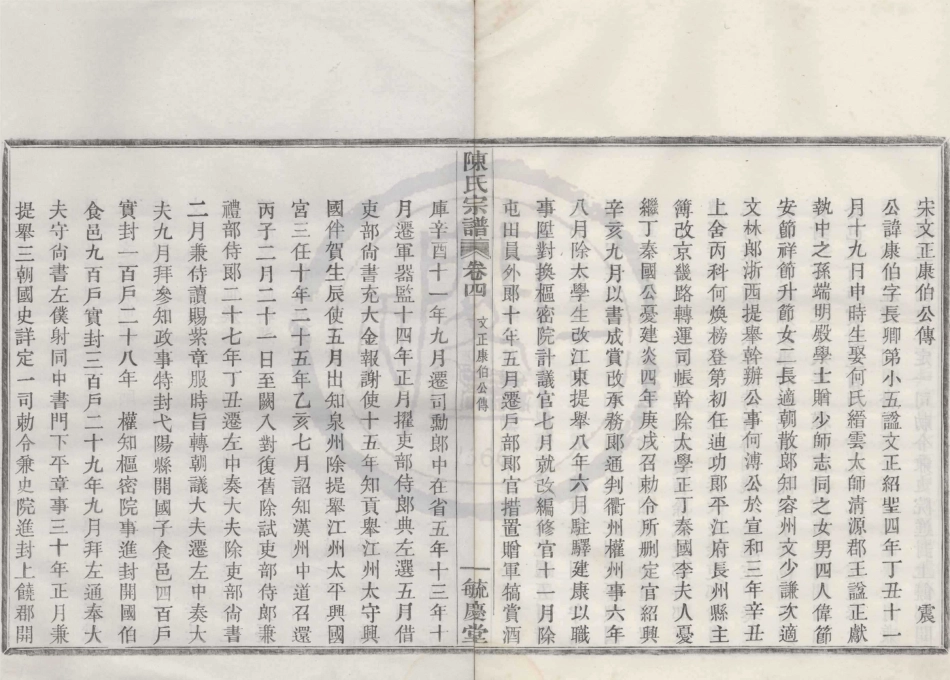 宋文正康伯公傳 震
公諱康伯字長卿第小五諡文正紹聖四年丁丑十一
月十九日申時生娶何氏縉雲太師清源郡王諡正獻
執中之孫端明殿學士贈少師志同之女男四人偉節
安節祥節升節女二長適朝散郎知容州文少謙次適
文林郎浙西提舉幹辦公事何溥公於宣和三年辛丑
上舍丙科何煥榜登第初任迪功郎平江府長州縣主
簿改京畿路轉運司帳幹除太學正丁秦國李夫人憂
繼丁秦國公憂建炎四年庚戌召勅令所删定官紹興
辛亥九月以書成賞改承務郎通判衢州權州事六年
八月除太學生改江東提舉八年六月駐驛建康以職
事陞對換樞密院計議官七月就改編修官十一月除
屯田員外郎十年五月遷戶部郎官措置贈軍犒賞酒
陳氏宗譜 卷四 文正康伯公傳 一 毓慶堂
庫辛酉十一年九月遷司勳郎中在省五年十三年十
月遷軍器監十四年正月擢吏部侍郎典左選五月借
吏部尚書充大金報謝使十五年知貢舉江州太守興
國件賀生辰使五月出知泉州除提舉江州太平興國
宮三任十年二十五年乙亥七月詔知漢州中道召還
丙子二月二十一日至闕入對復舊除試吏部侍郎兼
禮部侍郎二十七年丁丑遷左中奏大夫除吏部尚書
二月兼侍讀賜紫章服時旨轉朝議大夫遷左中奏大
夫九月拜參知政事特封弋陽縣開國子食邑四百戶
實封一百戶二十八年 權知樞密院事進封開國伯
食邑九百戶實封三百戶二十九年九月拜左通奉大
夫守尚書左僕射同中書門下平章事三十年正月兼
提舉三朝國史詳定一司勅令兼史院進封上饒郡開